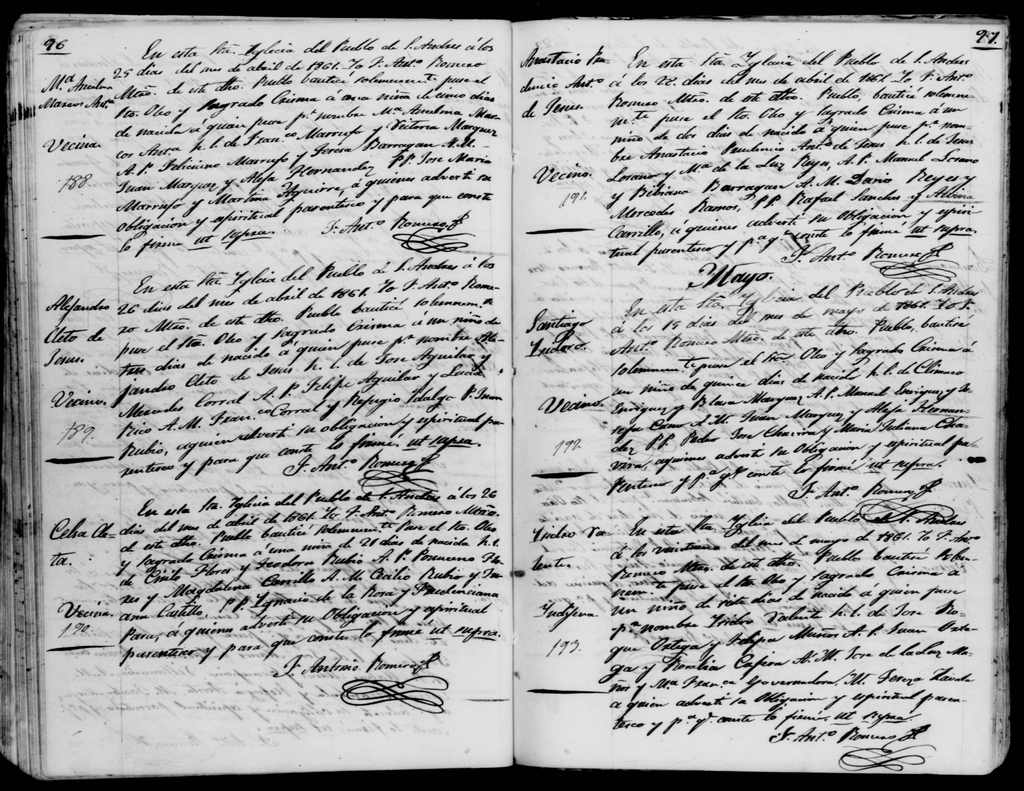 96
Mª Anselma
Marcos Antª
Vecina.
188.
En esta Sta. Yglecia del Pueblo de S. Andres á los
25 dias del mes de abril de 1861. Yo F. Antº Romero
Mtro. de este dho. Pueblo bauticé solemnemte puse el
Sto. Oleo y Sagrado Crisma á una niña de cinco dias
de nacida á quien puse pr nombre Mª Anselma Mar-
cos Antª h. l. de Franco Marrufo y Victoria Marquez
A. P. Feliciano Marrufo y Teresa Barragan A. M.
Juan Marquez y Alefa Hernandez PP. Jose Maria
Marrufo y Martina Aguirre, á quienes advertí su
obligacion y espiritual parentesco y para que conste
lo firmé ut supra. F. Antº Romero
Alejandro
Cleto de
Jesus.
Vecino.
189.
En esta Sta. Yglecia del Pueblo de S. Andres á los
26 dias del mes de abril de 1861. Yo F. Antº Rome-
ro Mtro. de este dho. Pueblo bauticé solemnemte
puse el Sto. Oleo y Sagrado Crisma á un niño de
tres dias de nacido á quien puse pr nombre Ale-
jandro Cleto de Jesus h. l. de Jose Aguilar y
Mercedes Corral A. P. Felipe Aguilar y Lucia
Rico A. M. Franco Corral y Refugio Idalgo P. Juan
Rubio, a quien advertí su obligacion y espiritual pa-
rentesco y para que conste lo firmé ut supra.
F. Antº Romero
Celsa Ca-
ta.
Vecina.
190.
En esta Sta. Yglecia del Pueblo de S. Andres á los 26
dias del mes de abril de 1861. Yo F. Antº Romero Mtro.
de este dho. Pueblo bauticé solemnemte puse el Sto. Oleo
y Sagrado Crisma á una niña de 21 dias de nacida h. l.
de Cirilo Flores y Teodora Rubio A. P. Ponuceno Flo-
res y Magdalena Carrillo A. M. Cecilio Rubio y Ju-
ana Castillo. PP. Ygnacio de la Rosa y Prudenciana
Para, a quienes advertí su obligacion y espiritual
parentesco y para que conste lo firmé ut supra.
F. Antonio Romero
97.
Anastacio Pru-
dencio Antº
de Jesus.
Vecino.
191.
En esta Sta Yglecia del Pueblo de S. Andres
á los 28 dias del mes de abril de 1861 Yo F. Antº
Romero Mtro. de este dho. Pueblo, bauticé solemne-
mte puse el Sto. Oleo y Sagrado Crisma á un
niño de dos dias de nacido a quien puse pr nom-
bre Anastacio Prudencio Antº de Jesus h. l. de Jesus
Lozano y Mª de la Luz Reyes, A. P. Manuel Lozano
y Bibiana Barragan A. M. Dario Reyes y
Mercedes Ramos, PP. Rafael Sanches y Albina
Carrillo, a quienes advertí su obligacion y espiri-
tual parentesco y pa qe conste lo firmé ut supra.
F. Antº Romero
Mayo.
Santiago
Ysidoro.
Vecino.
192.
En esta Sta Yglecia del Pueblo de S. Andres
á los 19 dias del mes de mayo de 1861. Yo F.
Antº Romero Mtro. de este dho. Pueblo, bauticé
solemnemte puse el Sto. Oleo y Sagrado Crisma á
un niño de quince dias de nacido h. l. de
Enriquez y Marquez A. P. Manuel Enriquez y Jo-
sefa Cano A. M. Juan Marquez y Alefa Hernan-
dez PP. Pedro Jose Chavira y Maria Juliana Cha-
vara, aquienes advertí su obligacion y espiritual pa-
rentesco y pa qe conste lo firmé ut supra.
F. Antº Romero
Ysidro Va-
lente.
Yndígena
193.
En esta Sta Yglecia del Pueblo de S. Andres
á los del mes de mayo de 1861. Yo F. Antº
Romero Mtro. de este dho. Pueblo bauticé solem-
nemte puse el Sto. Oleo y Sagrado Crisma á
un niño de siete dias de nacido a quien puse
pr nombre Ysidro Valente h. l. de Jose Ro-
que Ortega y Felipa Muños A. P. Juan Orte-
ga y Rosalia A. M. Jose de la Luz Mu-
ños y Mª Franca M. Teresa
a quien advertí su obligacion y espiritual paren-
tesco y pa qe conste lo firmé ut supra
F. Antº Romero